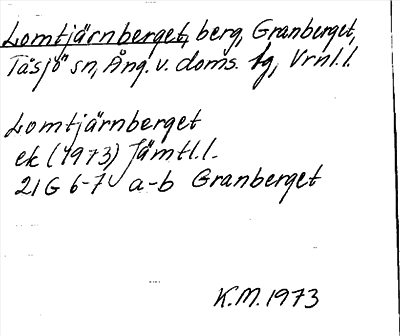 Lomtjärnberget, berg, Granberget,
Tåsjö sn, Ång. v. doms. fg, Vrnl.l.
Lomtjärnberget
ek (1973) Jämtl.l.
21G 6-7 a-b Granberget
K.M. 1973